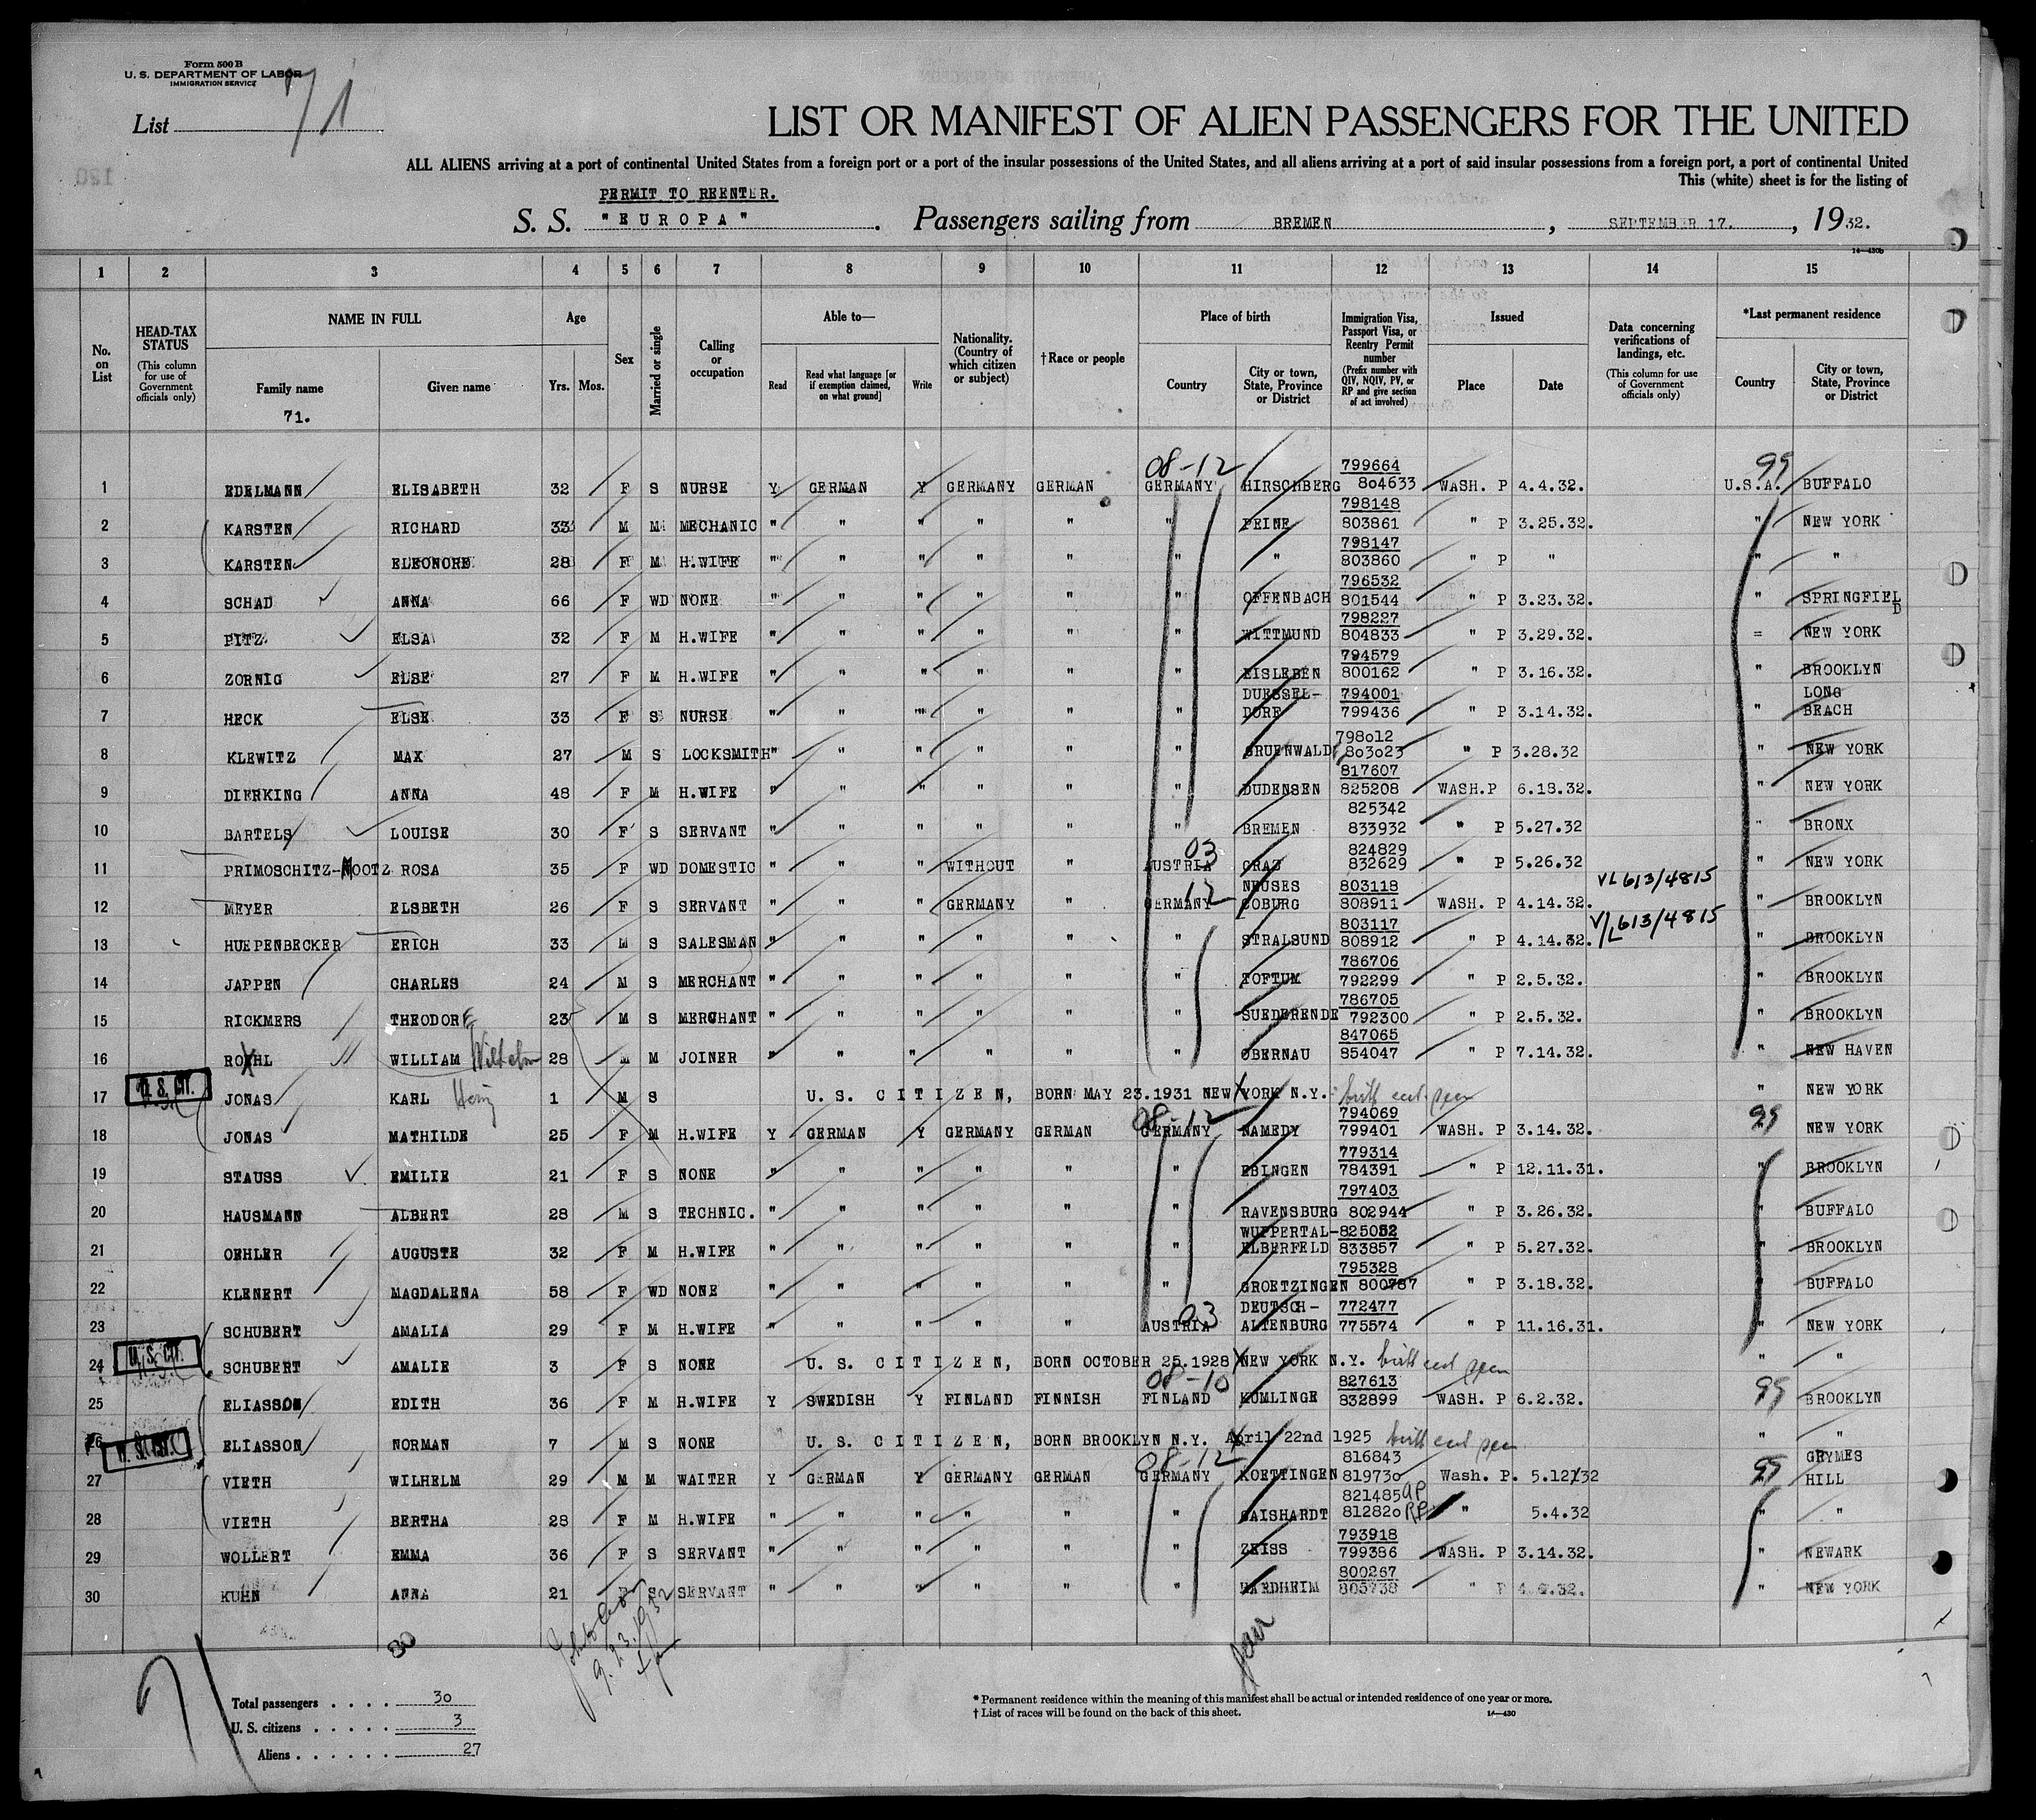 Form 500 B
U. S. DEPARTMENT OF LABOR
IMMIGRATION SERVICE
List 71
LIST OR MANIFEST OF ALIEN PASSENGERS FOR THE UNITED
ALL ALIENS arriving at a port of continental United States from a foreign port or a port of the insular possessions of the United States, and all aliens arriving at a port of said insular possessions from a foreign port, a port of continental United
This (white) sheet is for the listing of
PERMIT TO REENTER.
S. S. "EUROPA". Passengers sailing from BREMEN, SEPTEMBER 17., 1932.
14—430b
1 2 3 4 5 6 7 8 9 10 11 12 13 14 15
No. on List
HEAD-TAX STATUS (This column for use of Government officials only)
NAME IN FULL
Family name
71.
Given name
Age
Yrs. Mos.
Sex
Married or single
Calling or occupation
Able to—
Read
Read what language [or if exemption claimed, on what ground]
Write
Nationality. (Country of which citizen or subject)
†Race or people
Place of birth
Country
City or town, State, Province or District
Immigration Visa, Passport Visa, or Reentry Permit number (Prefix number with QIV, NQIV, PV, or RP and give section of act involved)
Issued
Place
Date
Data concerning verifications of landings, etc. (This column for use of Government officials only)
*Last permanent residence
Country
City or town, State, Province or District
08-12 799664 99
1 EDELMANN ELISABETH 32 F S NURSE Y GERMAN Y GERMANY GERMAN GERMANY HIRSCHBERG 804633 WASH. P 4.4.32. U.S.A. BUFFALO
798148
2 KARSTEN RICHARD 33 M M MECHANIC " " " " " " PEINE 803861 " P 3.25.32. " NEW YORK
798147
3 KARSTEN ELEONORE 28 F M H.WIFE " " " " " " " 803860 " P " " "
796532
4 SCHAD ANNA 66 F WD NONE " " " " " " OFFENBACH 801544 " P 3.23.32. " SPRINGFIELD
798227
5 PITZ ELSA 32 F M H.WIFE " " " " " " WITTMUND 804833 " P 3.29.32. = NEW YORK
794579
6 ZORNIG ELSE 27 F M H.WIFE " " " " " " EISLEBEN 800162 " P 3.16.32. " BROOKLYN
DUESSEL- 794001 LONG
7 HECK ELSE 33 F S NURSE " " " " " " DORF 799436 " P 3.14.32. " BEACH
798012
8 KLEWITZ MAX 27 M S LOCKSMITH " " " " " " GRUENWALD 803023 " P 3.28.32 " NEW YORK
817607
9 DIERKING ANNA 48 F M H.WIFE " " " " " " DUDENSEN 825208 WASH.P 6.18.32. " NEW YORK
825342
10 BARTELS LOUISE 30 F S SERVANT " " " " " " BREMEN 833932 " P 5.27.32 " BRONX
03 824829
11 PRIMOSCHITZ-MOOTZ ROSA 35 F WD DOMESTIC " " " WITHOUT " AUSTRIA GRAZ 832629 " P 5.26.32 " NEW YORK
12 NEUSES 803118 VL613/4815
12 MEYER ELSBETH 26 F S SERVANT " " " GERMANY " GERMANY COBURG 808911 WASH. P 4.14.32. " BROOKLYN
803117 V/L613/4815
13 HUEPENBECKER ERICH 33 M S SALESMAN " " " " " " STRALSUND 808912 " P 4.14.32. " BROOKLYN
786706
14 JAPPEN CHARLES 24 M S MERCHANT " " " " " " TOFTUM 792299 " P 2.5.32. " BROOKLYN
786705
15 RICKMERS THEODORE 23 M S MERCHANT " " " " " " SUEDERENDE 792300 " P 2.5.32. " BROOKLYN
847065
16 ROEHL WILLIAM Wilhelm 28 M M JOINER " " " " " " OBERNAU 854047 " P 7.14.32. " NEW HAVEN
U. S. CIT.
17 JONAS KARL 1 M S U. S. CITIZEN, BORN MAY 23.1931 NEW YORK N.Y. birth cert seen " NEW YORK
08-12 794069 99
18 JONAS MATHILDE 25 F M H.WIFE Y GERMAN Y GERMANY GERMAN GERMANY NAMEDY 799401 WASH. P 3.14.32. NEW YORK
779314
19 STAUSS EMILIE 21 F S NONE " " " " " " EBINGEN 784391 " P 12.11.31. " BROOKLYN
797403
20 HAUSMANN ALBERT 28 M S TECHNIC. " " " " " " RAVENSBURG 802944 " P 3.26.32. " BUFFALO
WUPPERTAL- 825052
21 OEHLER AUGUSTE 32 F M H.WIFE " " " " " " ELBERFELD 833857 " P 5.27.32. " BROOKLYN
795328
22 KLENERT MAGDALENA 58 F WD NONE " " " " " " GROETZINGEN 800787 " P 3.18.32. " BUFFALO
03 DEUTSCH- 772477
23 SCHUBERT AMALIA 29 F M H.WIFE " " " " " AUSTRIA ALTENBURG 775574 " P 11.16.31. " NEW YORK
U. S. CIT.
24 SCHUBERT AMALIE 3 F S NONE U. S. CITIZEN, BORN OCTOBER 25.1928 NEW YORK N.Y. birth cert seen " "
08-10 827613 99
25 ELIASSON EDITH 36 F M H.WIFE Y SWEDISH Y FINLAND FINNISH FINLAND KUMLINGE 832899 WASH. P 6.2.32. BROOKLYN
U. S. CIT.
26 ELIASSON NORMAN 7 M S NONE U. S. CITIZEN, BORN BROOKLYN N.Y. April 22nd 1925 birth cert seen " "
08-12 816843 99 GRYMES
27 VIETH WILHELM 29 M M WAITER Y GERMAN Y GERMANY GERMAN GERMANY KOETTINGEN 819730 Wash. P. 5.12/32 HILL
821485 AP
28 VIETH BERTHA 28 F M H.WIFE " " " " " " GAISHARDT 812820 RP " 5.4.32 " "
793918
29 WOLLERT EMMA 36 F S SERVANT " " " " " " ZEISS 799386 WASH. P 3.14.32. " NEWARK
800267
30 KUHN ANNA 21 F S SERVANT " " " " " " HARDHEIM 805738 " P " NEW YORK
30
9.23.1932
Total passengers . . . . 30
U. S. citizens . . . . . 3
Aliens . . . . . . 27
* Permanent residence within the meaning of this manifest shall be actual or intended residence of one year or more.
† List of races will be found on the back of this sheet.
14—430